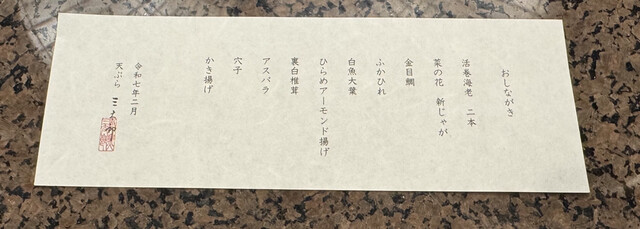 おしながき
活巻海老 二本
菜の花 新じゃが
金目鯛
ふかひれ
白魚大葉
ひらめアーモンド揚げ
裏白椎茸
アスパラ
穴子
かき揚げ
令和七年二月
天ぷら